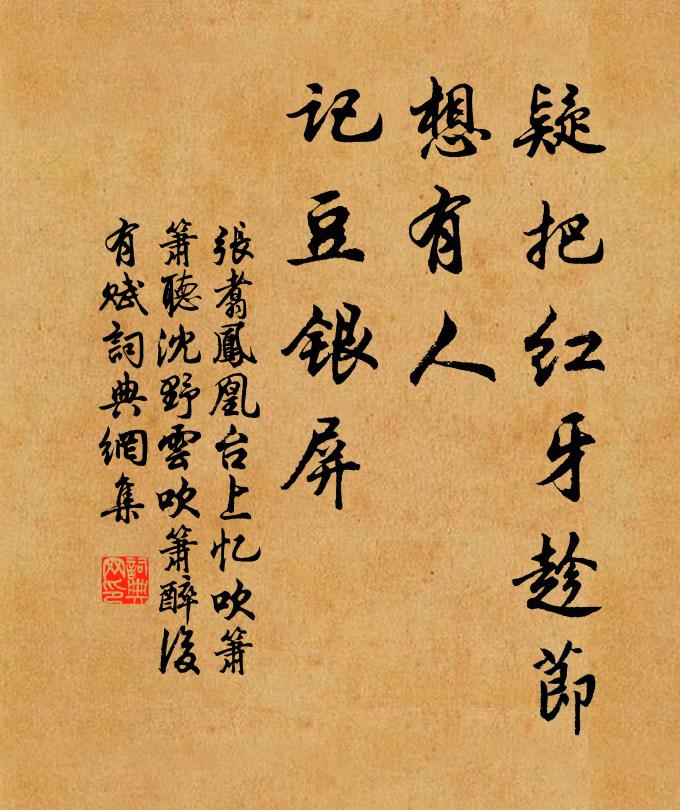 疑把红牙趁節
想有人
记豆银屏
張翥鳳凰台上忆吹箫
簫聽沈野雲吹簫醉後
有赋詞典網集
詞典
网印